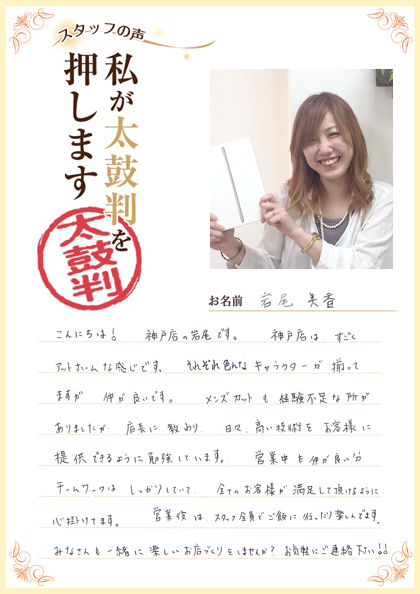 スタッフの声
私が太鼓判を
押します
太鼓判
お名前 岩尾 美香
こんにちは! 神戸店の岩尾です。 神戸店は すごく
アットホームな感じです。 それぞれ色んなキャラクターが揃って
ますが 仲が良いです。 メンズカットも経験不足な所が
ありましたが 店長に教わり、日々、高い技術をお客様に
提供できるように勉強しています。 営業中も仲が良い分
チームワークは しっかりしていて、全てのお客様が満足して頂けるように
心掛けてます。 営業後は、スタッフ全員でご飯に行ったり楽しんでます。
みなさんも一緒に楽しいお店づくりをしませんか?お気軽にご連絡下さい!!